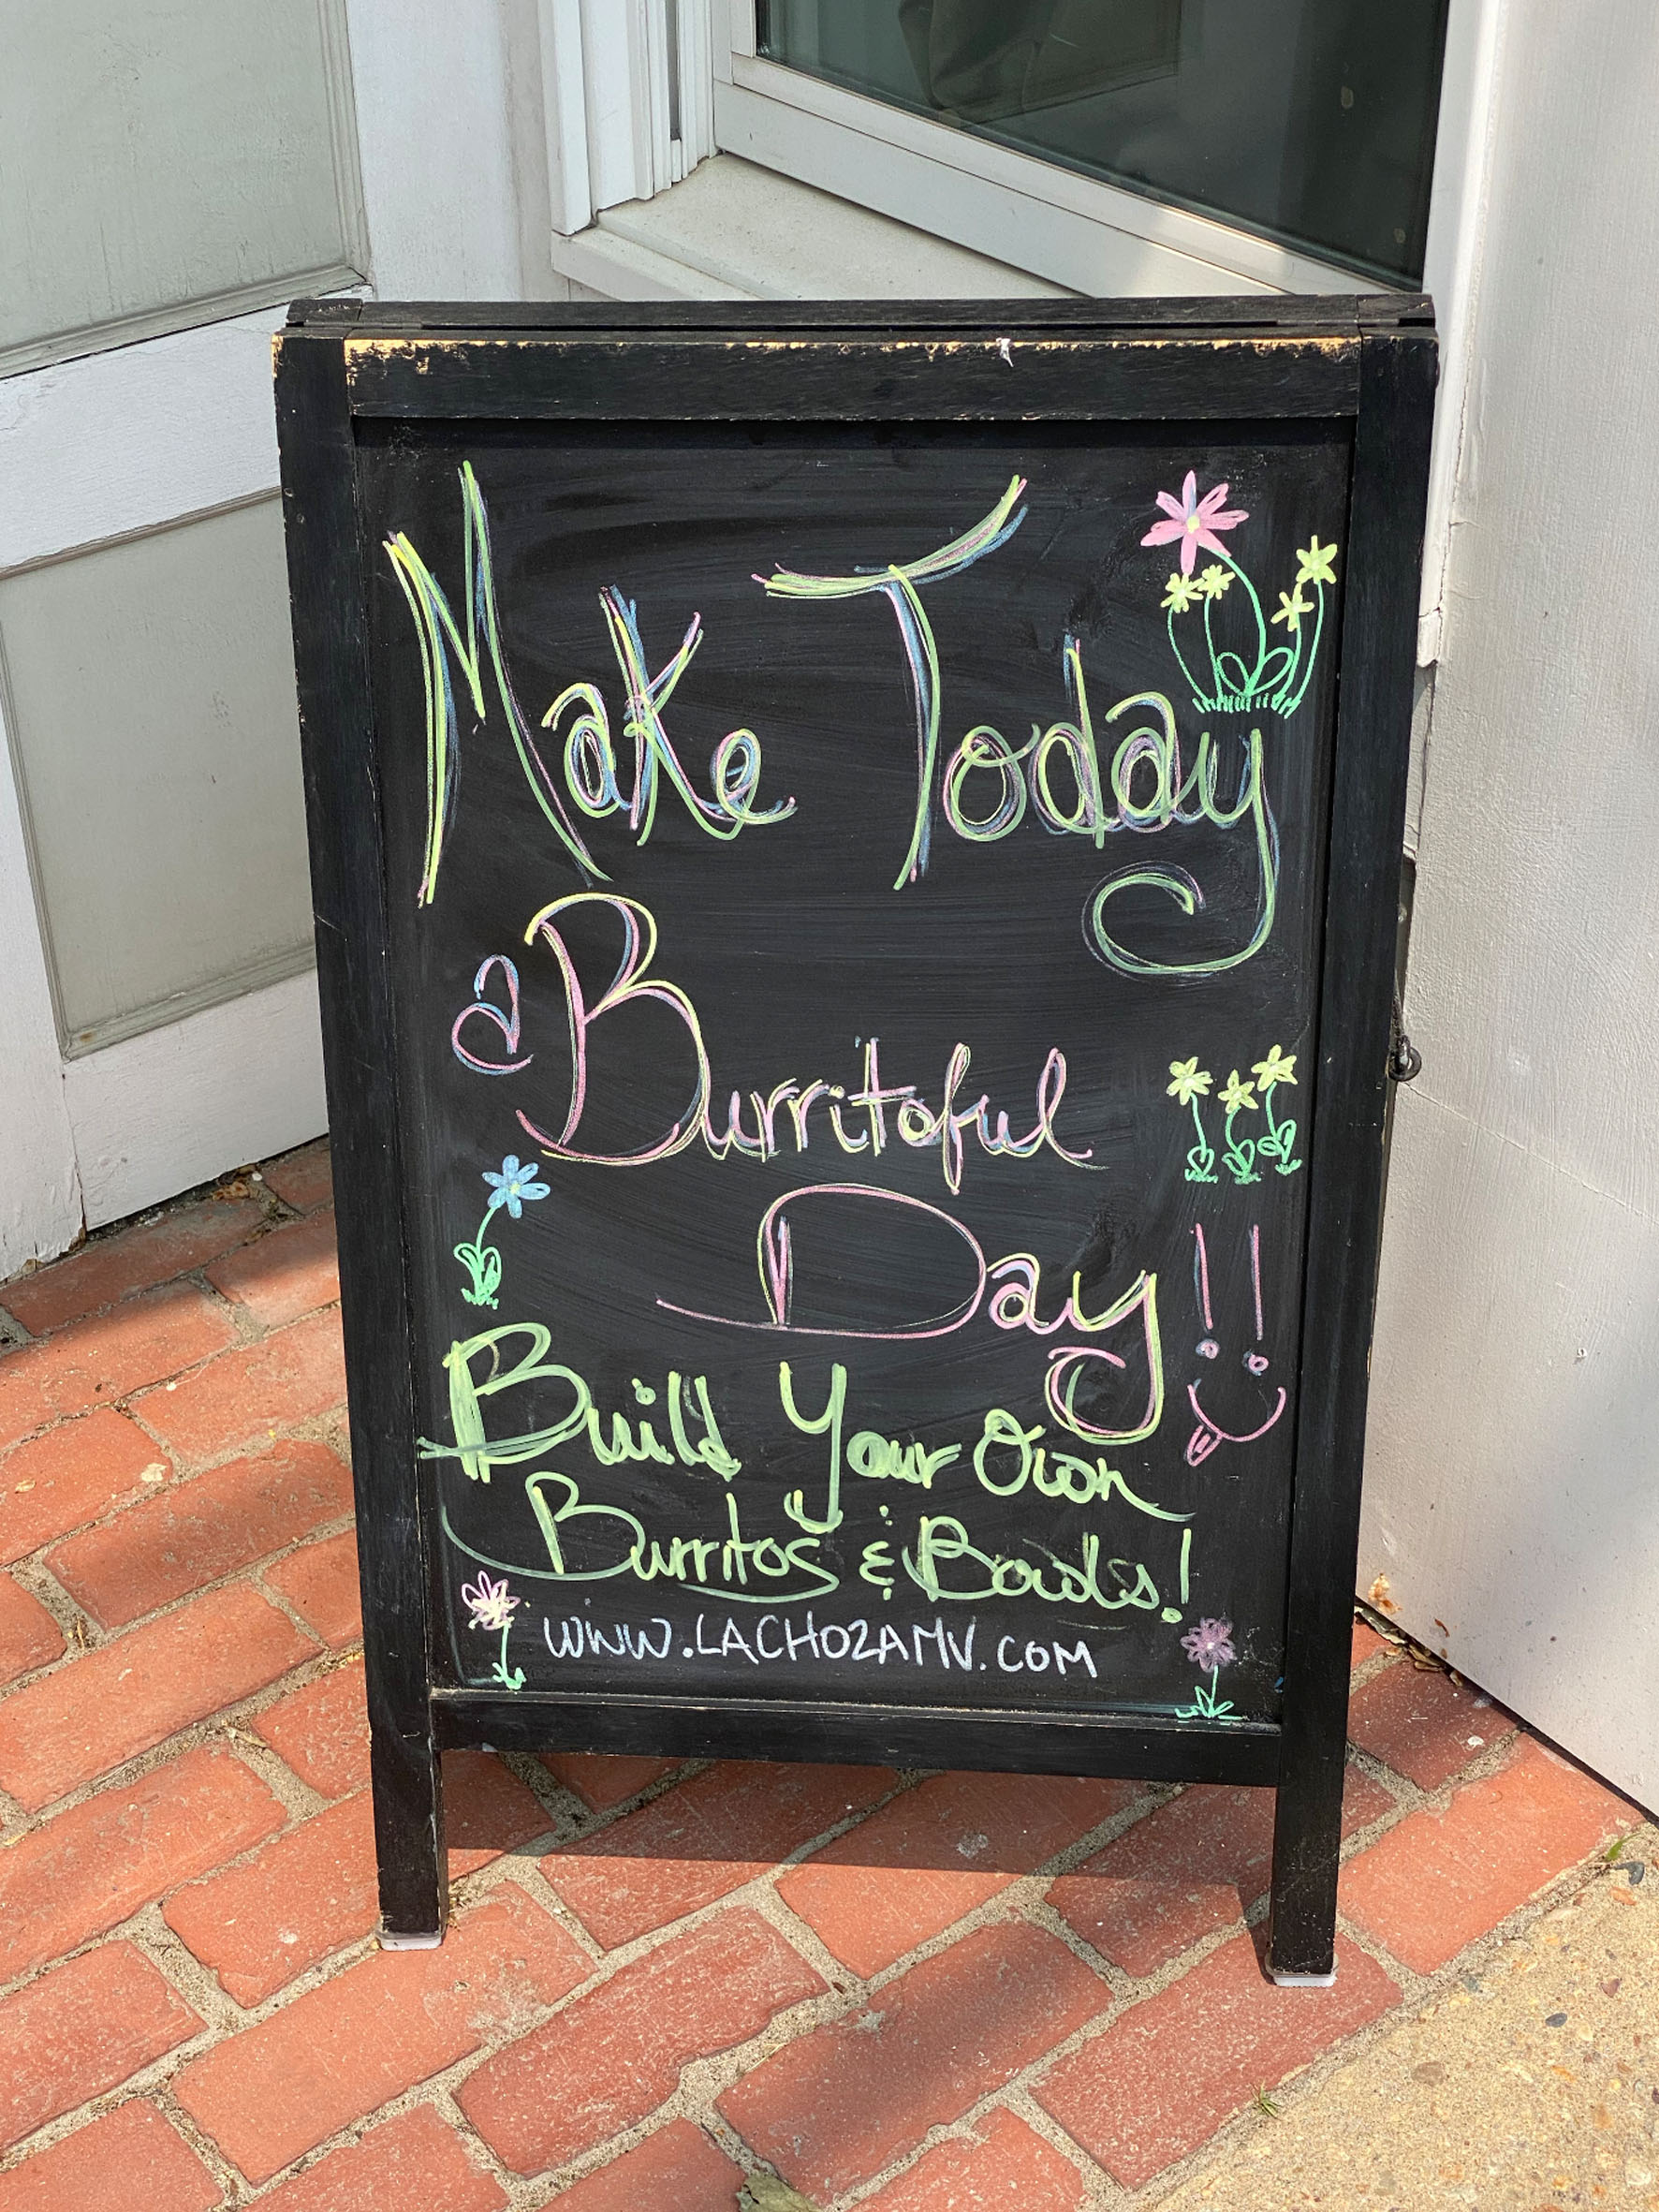 Make Today
Burritoful
Day!!
Build Your Own
Burritos & Bowls!
WWW.LACHOZAMV.COM